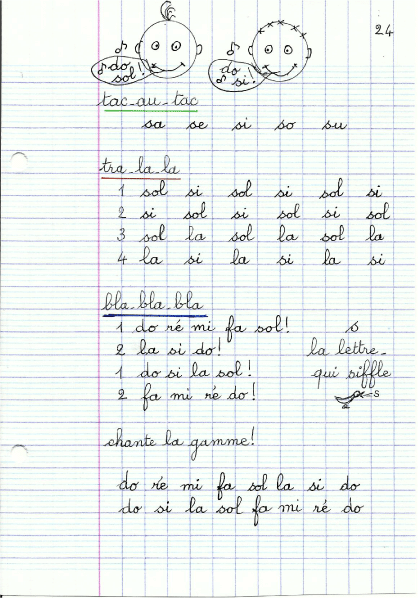 24
do
sol !
do
si !
tac-au-tac
sa se si so su
tra-la-la
1 sol si sol si sol si
2 si sol si sol si sol
3 sol la sol la sol la
4 la si la si la si
bla-bla-bla
1 do ré mi fa sol !
2 la si do !
1 do si la sol !
2 fa mi ré do !
s
la lettre
qui siffle
s
chante la gamme !
do ré mi fa sol la si do
do si la sol fa mi ré do